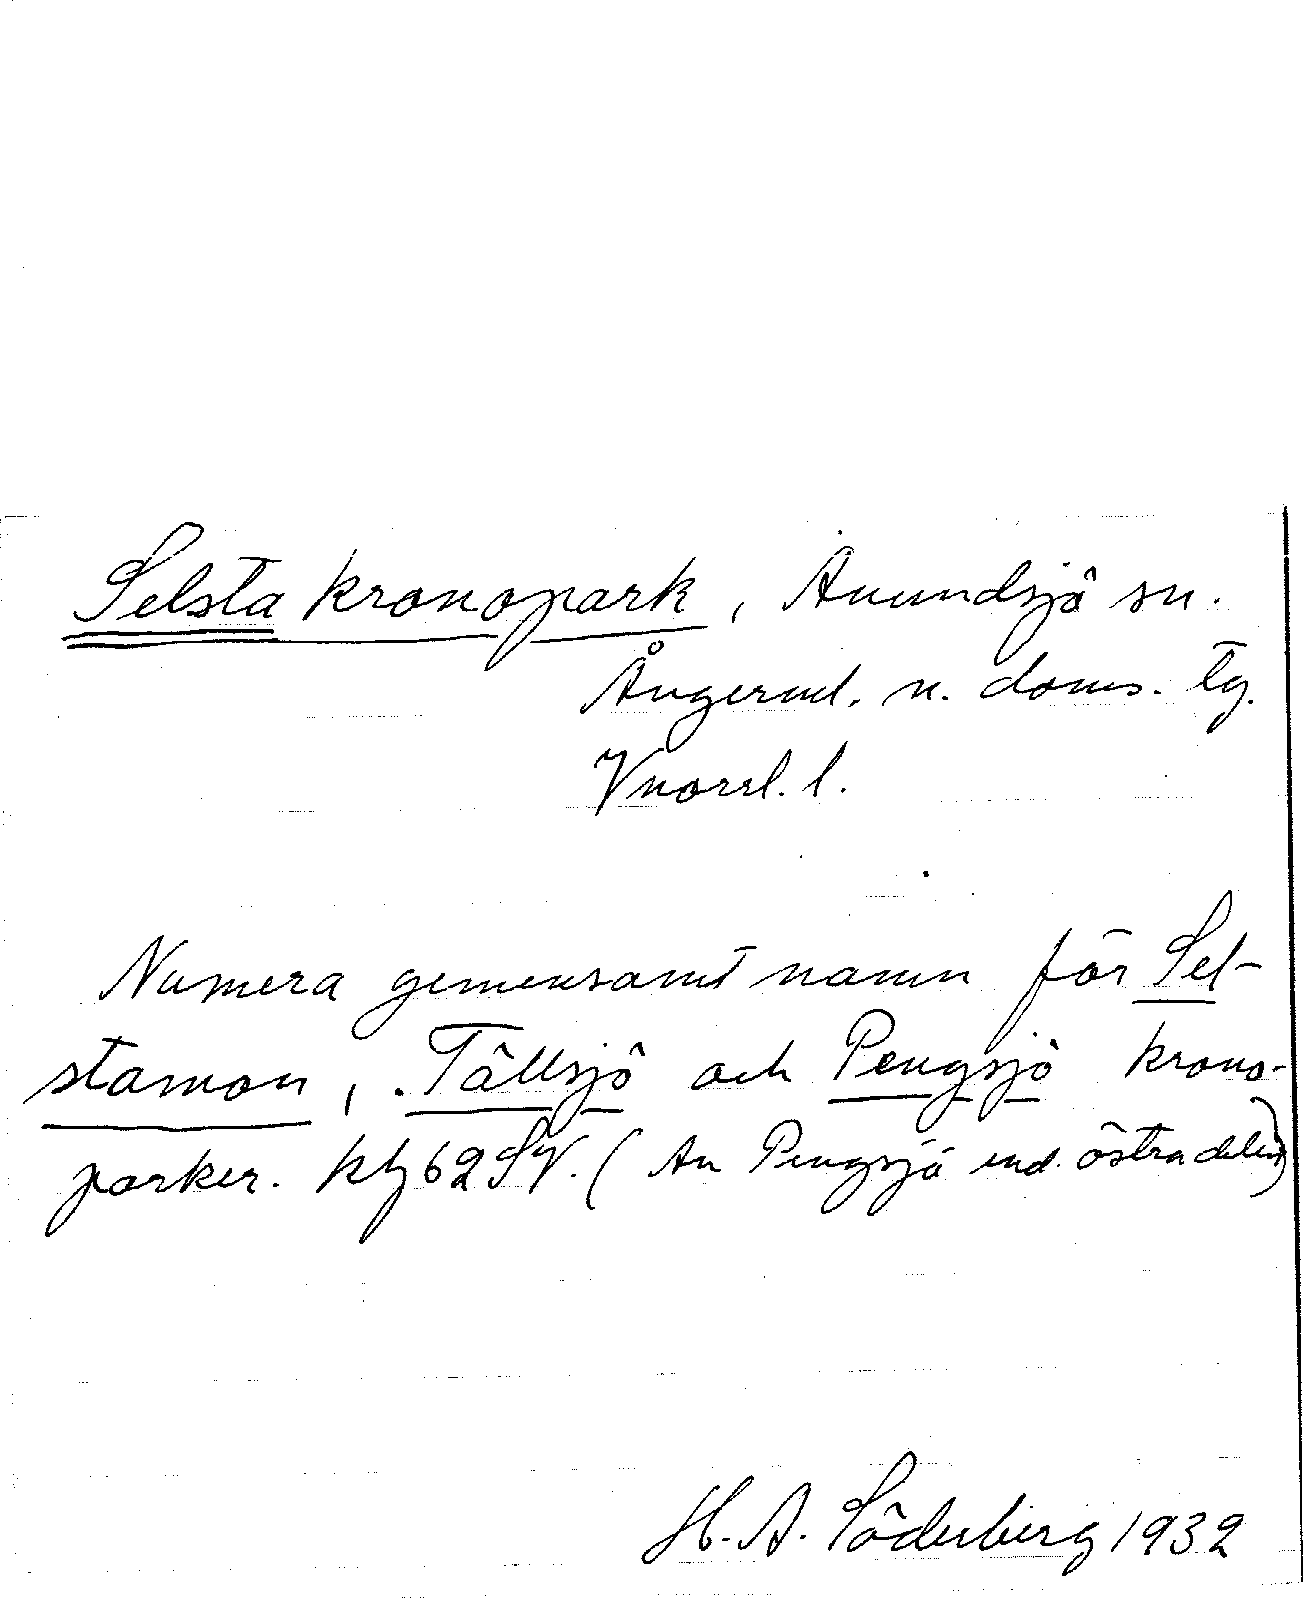 Selsta kronopark, Anundsjö sn.
Ångerml. n. doms. tg.
Vnorrl. l.
Numera gemensamt namn för Sel-
stamon, Tällsjö och Pengsjö krono-
parker. Kbl 62 SV. (Av Pengsjö end. östra delen)
H. A. Söderberg 1932